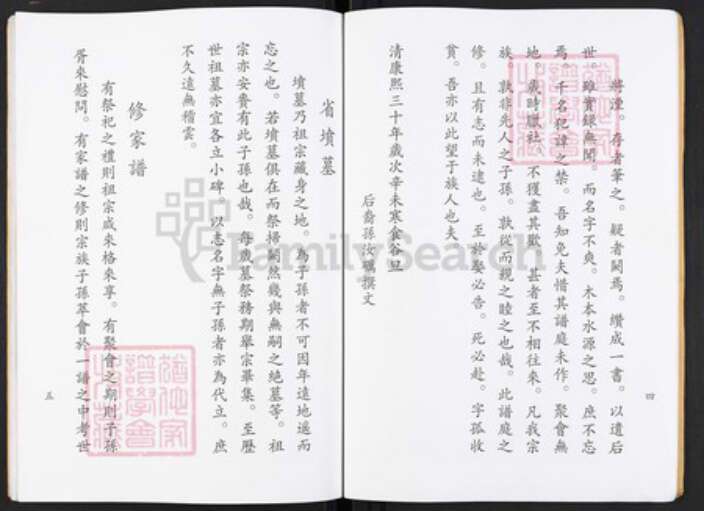 將湮。存者筆之。疑者闕焉。纘成一書。以遺后
世。雖實錄無聞。而名字不爽。木本水源之思。庶不忘
焉。千名祀諱之禁。吾知免夫惜其譜庭未作。聚會無
地。歲時臘社。不獲盡其歡。甚者至不相往來。凡我宗
族。孰非先人之子孫。孰從而親之睦之也哉。此譜庭之
修。且有志而未逮也。至於娶必告。死必赴。字孤收
貧。吾亦以此望于族人也夫。
清康熙三十年歲次辛未寒食谷旦
后裔孫汝礪撰文
四
省墳墓
墳墓乃祖宗藏身之地。為子孫者不可因年遠地遙而
忘之也。若墳墓俱在而祭掃闕然幾與無嗣之絶墓等。祖
宗亦安貴有此子孫也哉。每歲墓祭務期舉宗畢集。至歷
世祖墓亦宜各立小碑。以志名字無子孫者亦為代立。庶
不久遠無稽雲。
修家譜
有祭祀之禮則祖宗咸來格來享。有聚會之期則子孫
胥來慰問。有家譜之修則宗族子孫萃會於一譜之中考世
五
FamilySearch